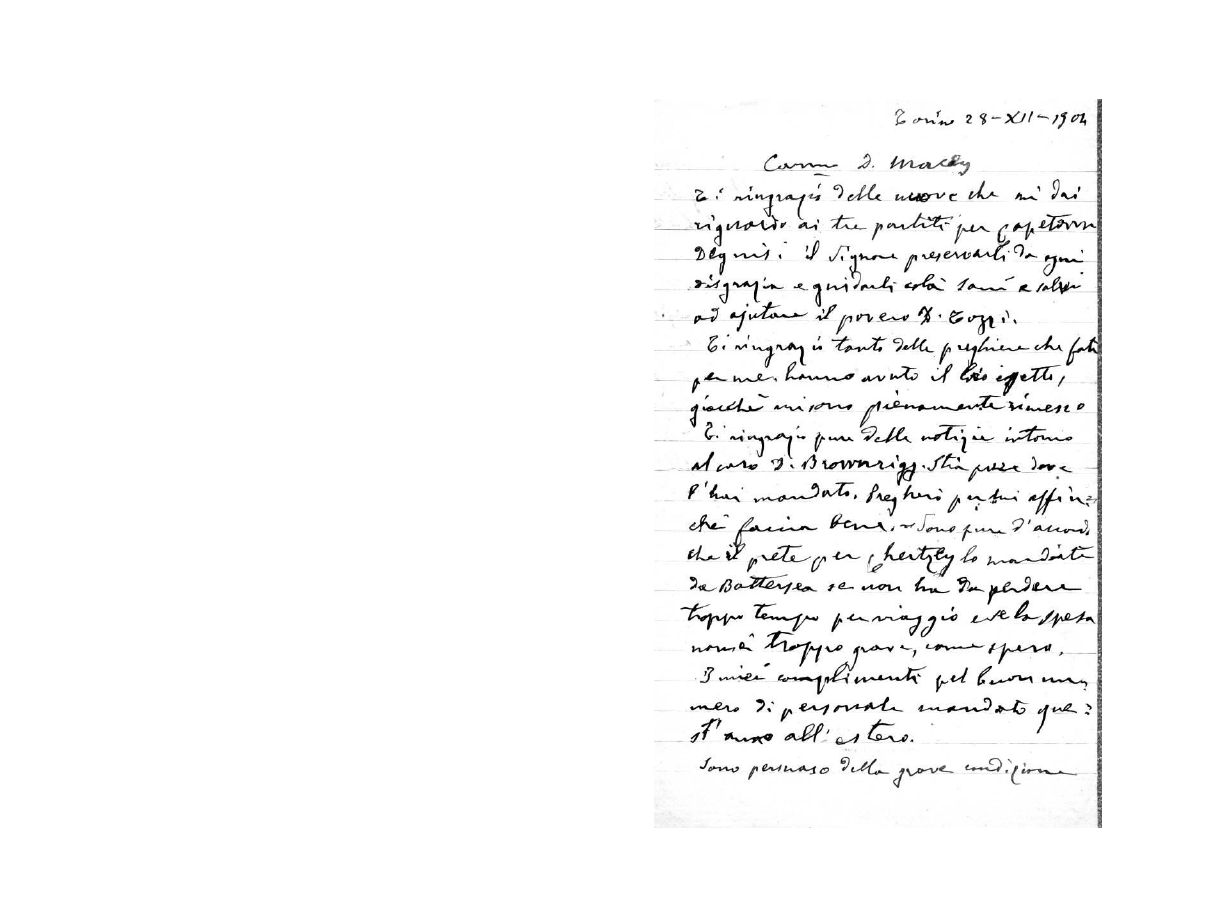 Torino 28-XII-1904
Carmo D. Macey
Ti ringrazio delle nuove che mi dai
riguardo ai tre partiti per Capetown
Degnisi il Signore preservarli da ogni
disgrazia e guidarli colà sani e salvi
ad ajutare il povero D. Tozzi.
Ti ringrazio tanto delle preghiere che fate
per me. hanno avuto il loro effetto,
giacchè mi sono pienamente rimesso
Ti ringrazio pure delle notizie intorno
al caro D. Brownrigg. Stia pure dove
l'hai mandato. Pregherò per lui affin=
chè faccia bene. Sono pure d'accordo
che il prete per Chertzey lo mandiate
da Battersea se non ha da perdere
troppo tempo per viaggio e se la spesa
non è troppo grave, come spero.
I miei complimenti pel buon nu
mero di personale mandato que=
st'anno all'estero.
Sono persuaso della grave condizione